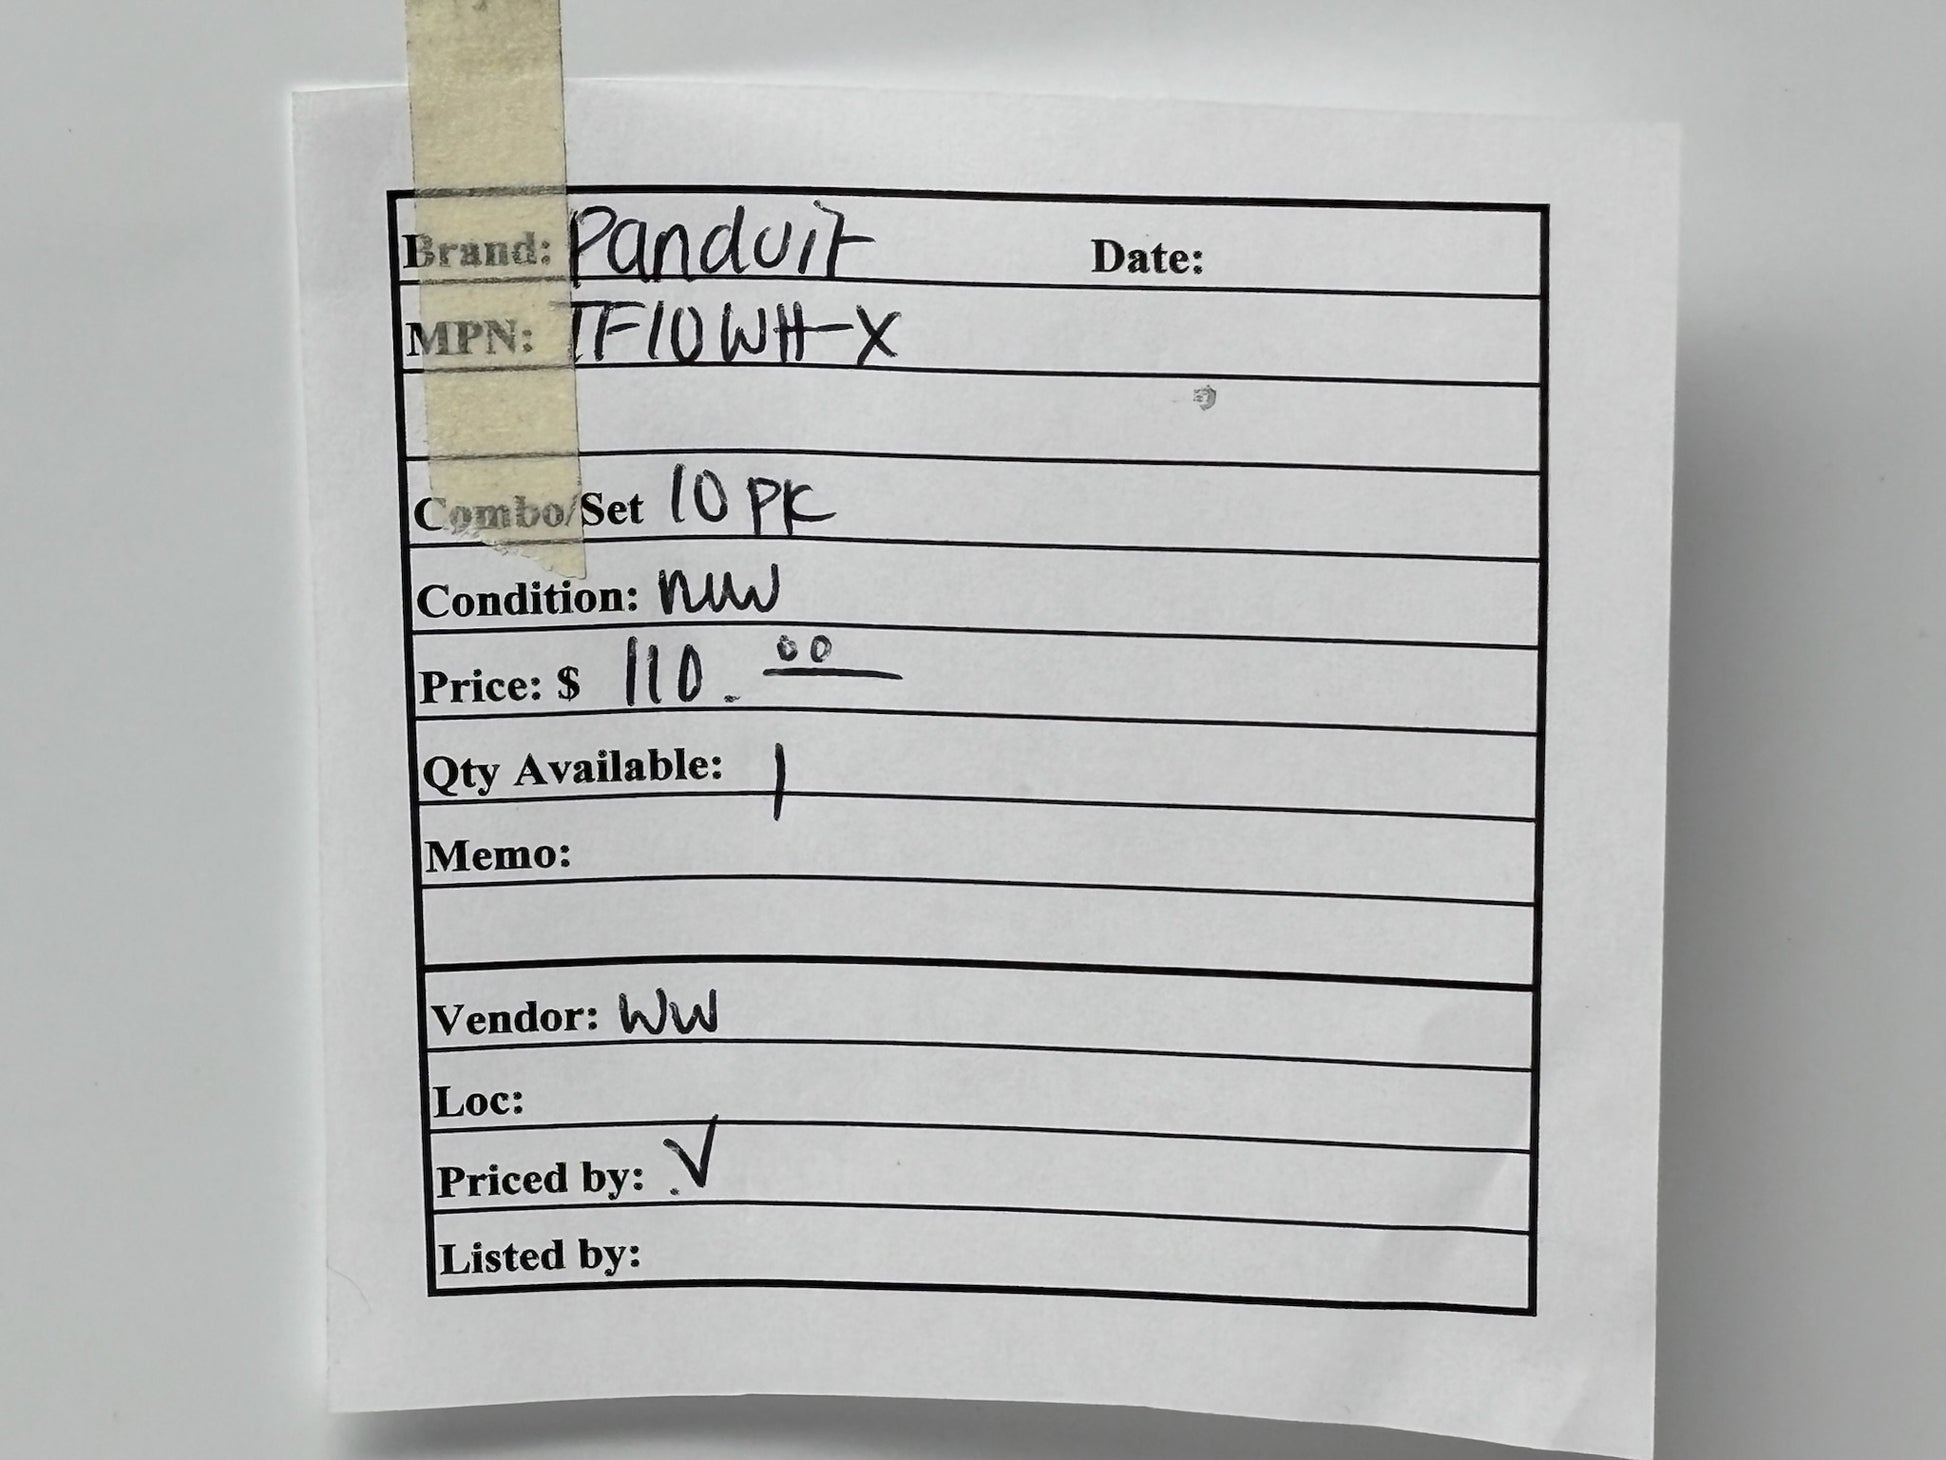 Brand: Panduit Date:
MPN: TF10WH-X
Combo/Set 10 PK
Condition: new
Price: $ 110.00
Qty Available: 1
Memo:
Vendor: WW
Loc:
Priced by: √
Listed by: